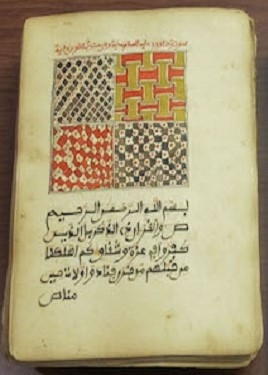 سورة داوود عليه السلام
بسم الله الرحمن الرحيم
ص والقران ذي الذكر بل الذين
كفروا في عزة وشقاق كم اهلكنا
من قبلهم من قرن فنادوا ولات حين
مناص